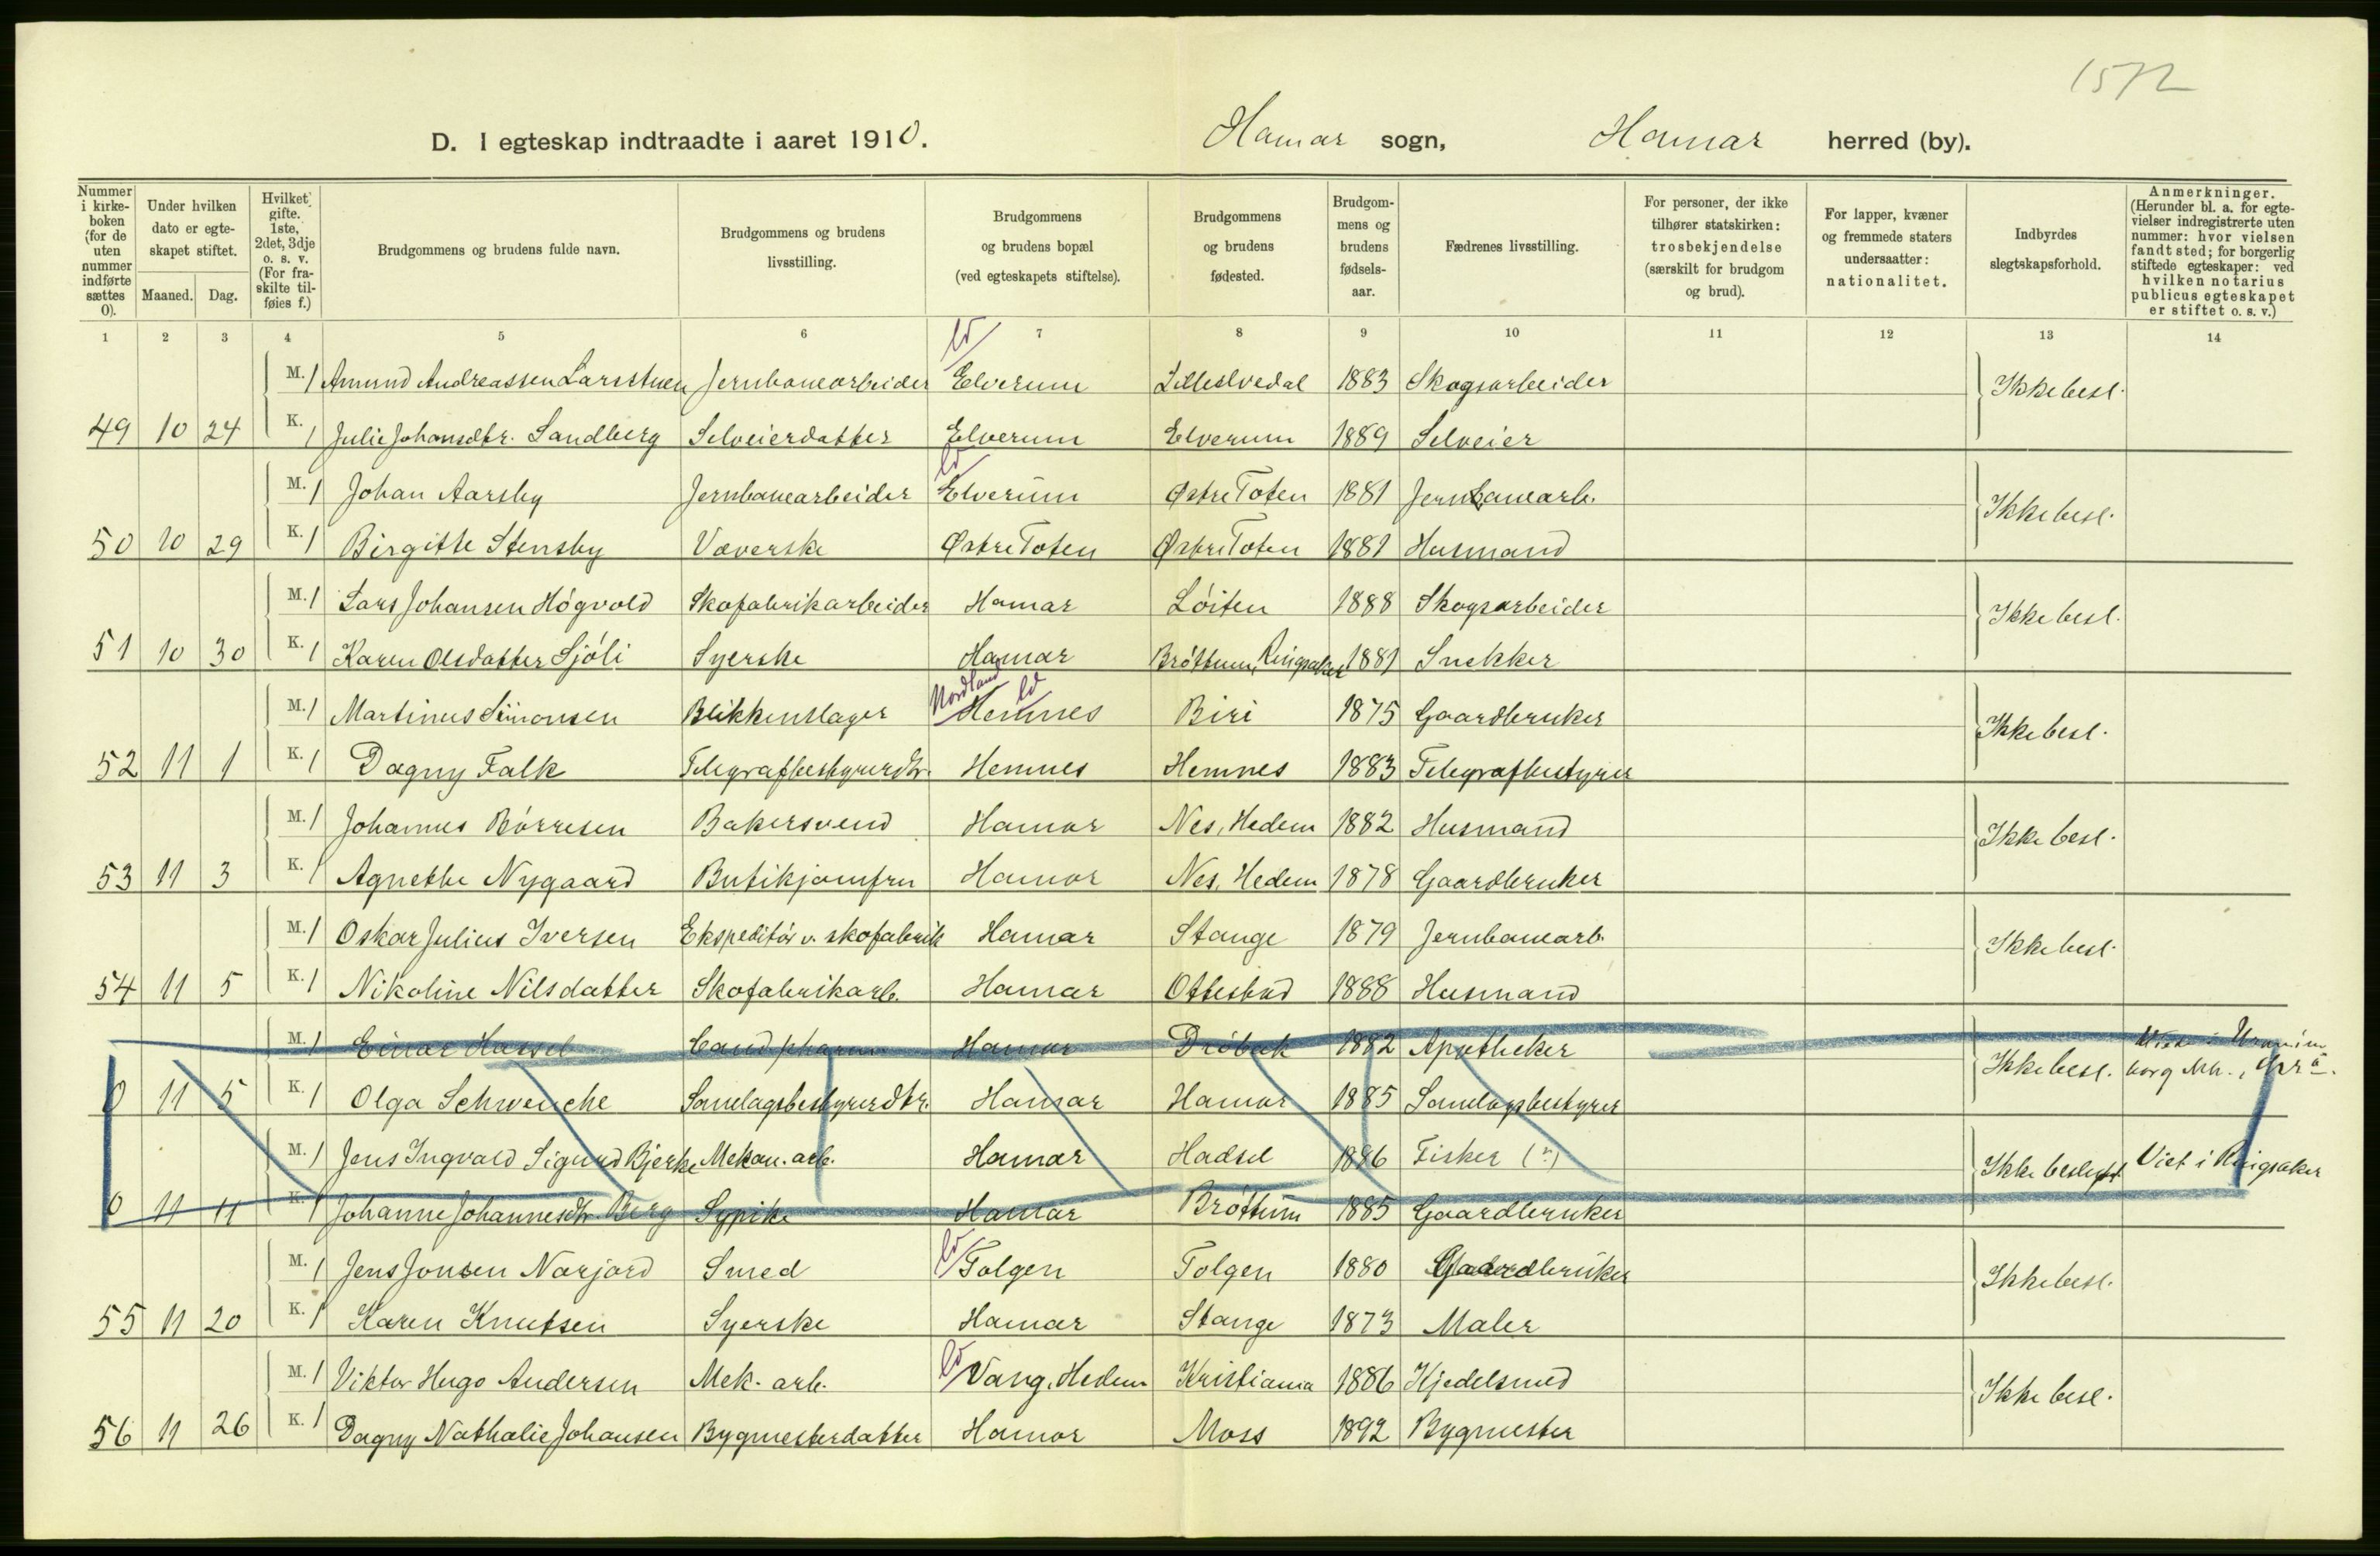 1572
D. I egteskap indtraadte i aaret 1910. Hamar sogn, Hamar herred (by).
Nummer i kirke-boken (for de uten nummer indførte sættes 0). Under hvilken dato er egte-skapet stiftet. Maaned. Dag. Hvilket gifte. 1ste, 2det, 3dje o. s. v. (For fra-skilte til-føies f.) Brudgommens og brudens fulde navn. Brudgommens og brudens livsstilling. Brudgommens og brudens bopæl (ved egteskapets stiftelse). Brudgommens og brudens fødested. Brudgom-mens og brudens fødsels-aar. Fædrenes livsstilling. For personer, der ikke tilhører statskirken: trosbekjendelse (særskilt for brudgom og brud). For lapper, kvæner og fremmede staters undersaatter: nationalitet. Indbyrdes slegtskapsforhold. Anmerkninger. (Herunder bl. a. for egte-vielser indregistrerte uten nummer: hvor vielsen fandt sted; for borgerlig stiftede egteskaper: ved hvilken notarius publicus egteskapet er stiftet o. s. v.)
1 2 3 4 5 6 7 8 9 10 11 12 13 14
M. 1 Amund Andreassen Larsstuen Jernbanearbeider Elverum Lilleelvedal 1883 Skogsarbeider Ikke besl.
49 10 24 K. 1 Julie Johansdtr. Sandberg Selveierdatter Elverum Elverum 1889 Selveier
M. 1 Johan Aarsby Jernbanearbeider Elverum Østre Toten 1881 Jernbanearb. Ikke besl.
50 10 29 K. 1 Birgitte Stensby Væverske Østre Toten Østre Toten 1881 Husmand
M. 1 Lars Johansen Høgvold Skofabrikarbeider Hamar Løiten 1888 Skogsarbeider Ikke besl.
51 10 30 K. 1 Karen Olsdatter Sjøli Syerske Hamar Brøttum, Ringsaker 1881 Snekker
Nordland
M. 1 Martinus Simonsen Blikkenslager Hemnes Biri 1875 Gaardbruker Ikke besl.
52 11 1 K. 1 Dagny Falk Telegrafbestyrerdtr. Hemnes Hemnes 1883 Telegrafbestyrer
M. 1 Johannes Børresen Bakersvend Hamar Nes, Hedem 1882 Husmand Ikke besl.
53 11 3 K. 1 Agnethe Nygaard Butikjomfru Hamar Nes, Hedem 1878 Gaardbruker
M. 1 Oskar Julius Iversen Ekspeditør v. skofabrik Hamar Stange 1879 Jernbanearb. Ikke besl.
54 11 5 K. 1 Nikoline Nilsdatter Skofabrikarb. Hamar Ottestad 1888 Husmand
M. 1 Einar Hassel Cand pharm Hamar Drøbak 1882 Apotheker Ikke besl. Viet i Uranienborg
0 11 5 K. 1 Olga Schwencke Samlagsbestyrerdtr. Hamar Hamar 1885 Samlagsbestyrer
M. 1 Jens Ingvald Sigurd Bjerke Mekan. arb. Hamar Hadsel 1886 Fisker (?) Ikke beslegtet Viet i Ringsaker
0 11 11 K. 1 Johanne Johannesdtr. Berg Sypike Hamar Brøttum 1885 Gaardbruker
M. 1 Jens Jonsen Narjord Smed Tolgen Tolgen 1880 Gaardbruker Ikke besl.
55 11 20 K. 1 Karen Knutsen Syerske Hamar Stange 1873 Maler
M. 1 Viktor Hugo Andersen Mek. arb. Vang, Hedem Kristiania 1886 Kjedelsmed Ikke besl.
56 11 26 K. 1 Dagny Nathalie Johansen Bygmesterdatter Hamar Moss 1892 Bygmester